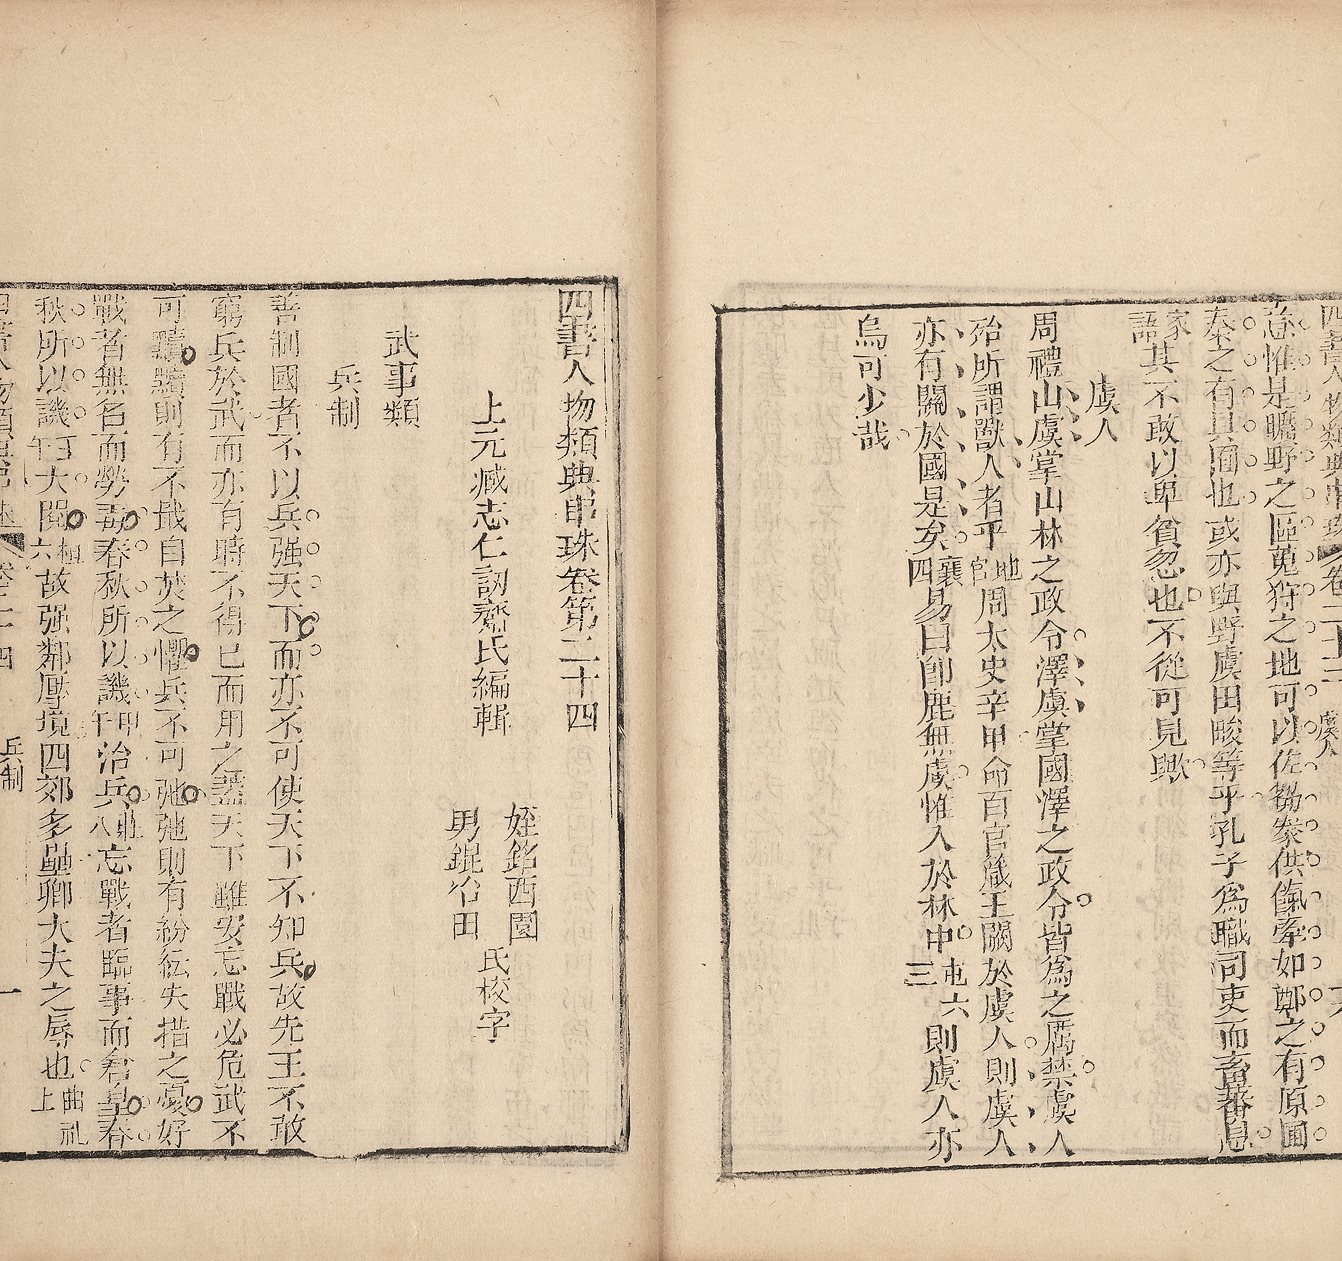 四書人物類典串珠 卷二十三 虞人
惟是瞻野之區蒐狩之地可以佐芻豢供餼牽如鄭之有原圃
秦之有具囿也或亦與野虞田畯等乎孔子為職司吏而畜蕃息
家語其不敢以卑貧忽也不從可見歟
虞人
周禮山虞掌山林之政令澤虞掌國澤之政令皆為之厲禁虞人
殆所謂獸人者乎地官周太史辛甲命百官箴王闕於虞人則虞人
亦有關於國是矣襄四易曰卽鹿無虞惟入於林中屯六三則虞人亦
烏可少哉
四書人物類典串珠卷第二十四
上元臧志仁訒齋氏編輯
姪銘西園
男錕谷田
氏校字
武事類
兵制
善制國者不以兵强天下而亦不可使天下不知兵故先王不敢
窮兵於武而亦有時不得已而用之蓋天下雖安忘戰必危武不
可黷黷則有不戢自焚之懼兵不可弛弛則有紛紜失措之憂好
戰者無名而勞毒春秋所以譏甲午治兵莊八忘戰者臨事而倉皇春
秋所以譏壬午大閱桓六故强鄰壓境四郊多壘卿大夫之辱也曲礼上
兵制 一